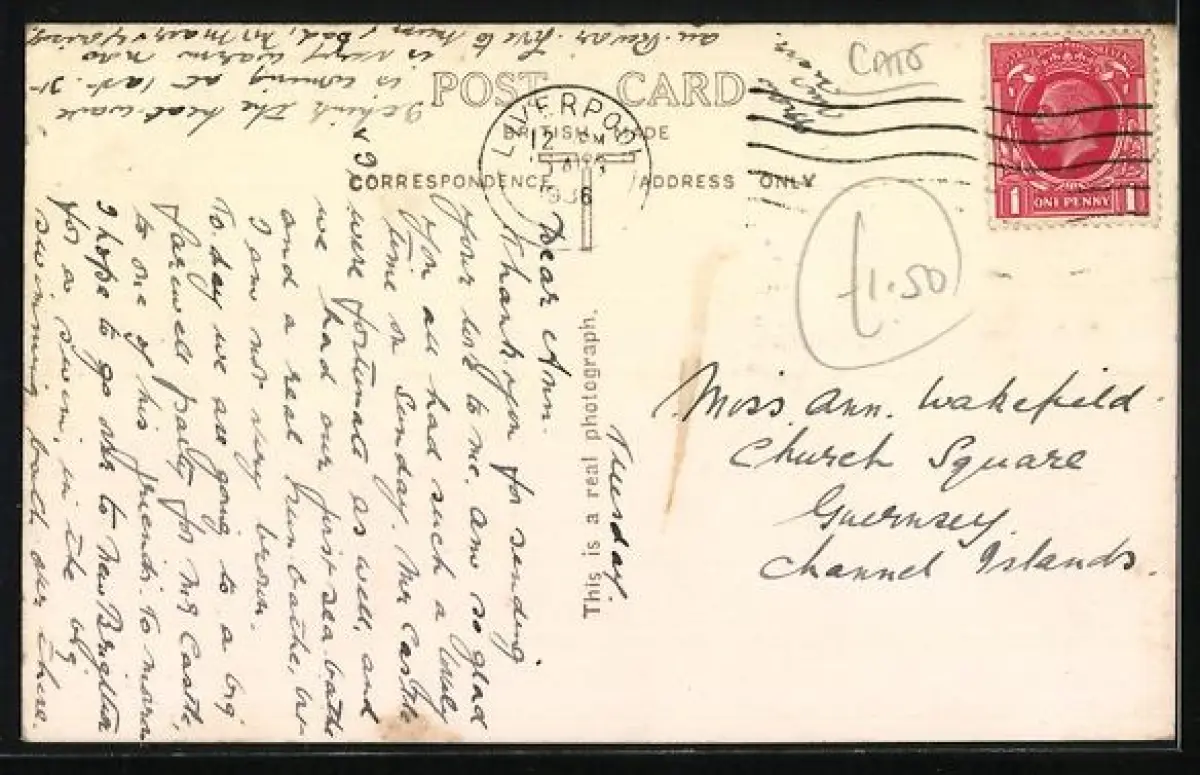 POST CARD
BRITISH MADE
CORRESPONDENCE
ADDRESS ONLY
LIVERPOOL
12
1936
CATS
£1.50
1 ONE PENNY 1
This is a real photograph.
Tuesday.
Dear Ann.
Thank you for sending
your love to me. am so glad
you all had such a lovely
time on Sunday. Mr Castle
& I were fortunate as well, and
we had our first sea-bathe
and a real sun bathe, but
I am not very brown.
To-day we are going to a big
farewell party for Mr Castle,
to one of his friends. To-morrow
I hope to go over to New Brighton
for a swim, in the big
swimming bath over there.
I think the heat-wave
is coming at last. It
is very warm now
au-revoir. love to Mum, Dad,
from
Miss. Ann. Wakefield.
Church Square
Guernsey.
Channel Islands.